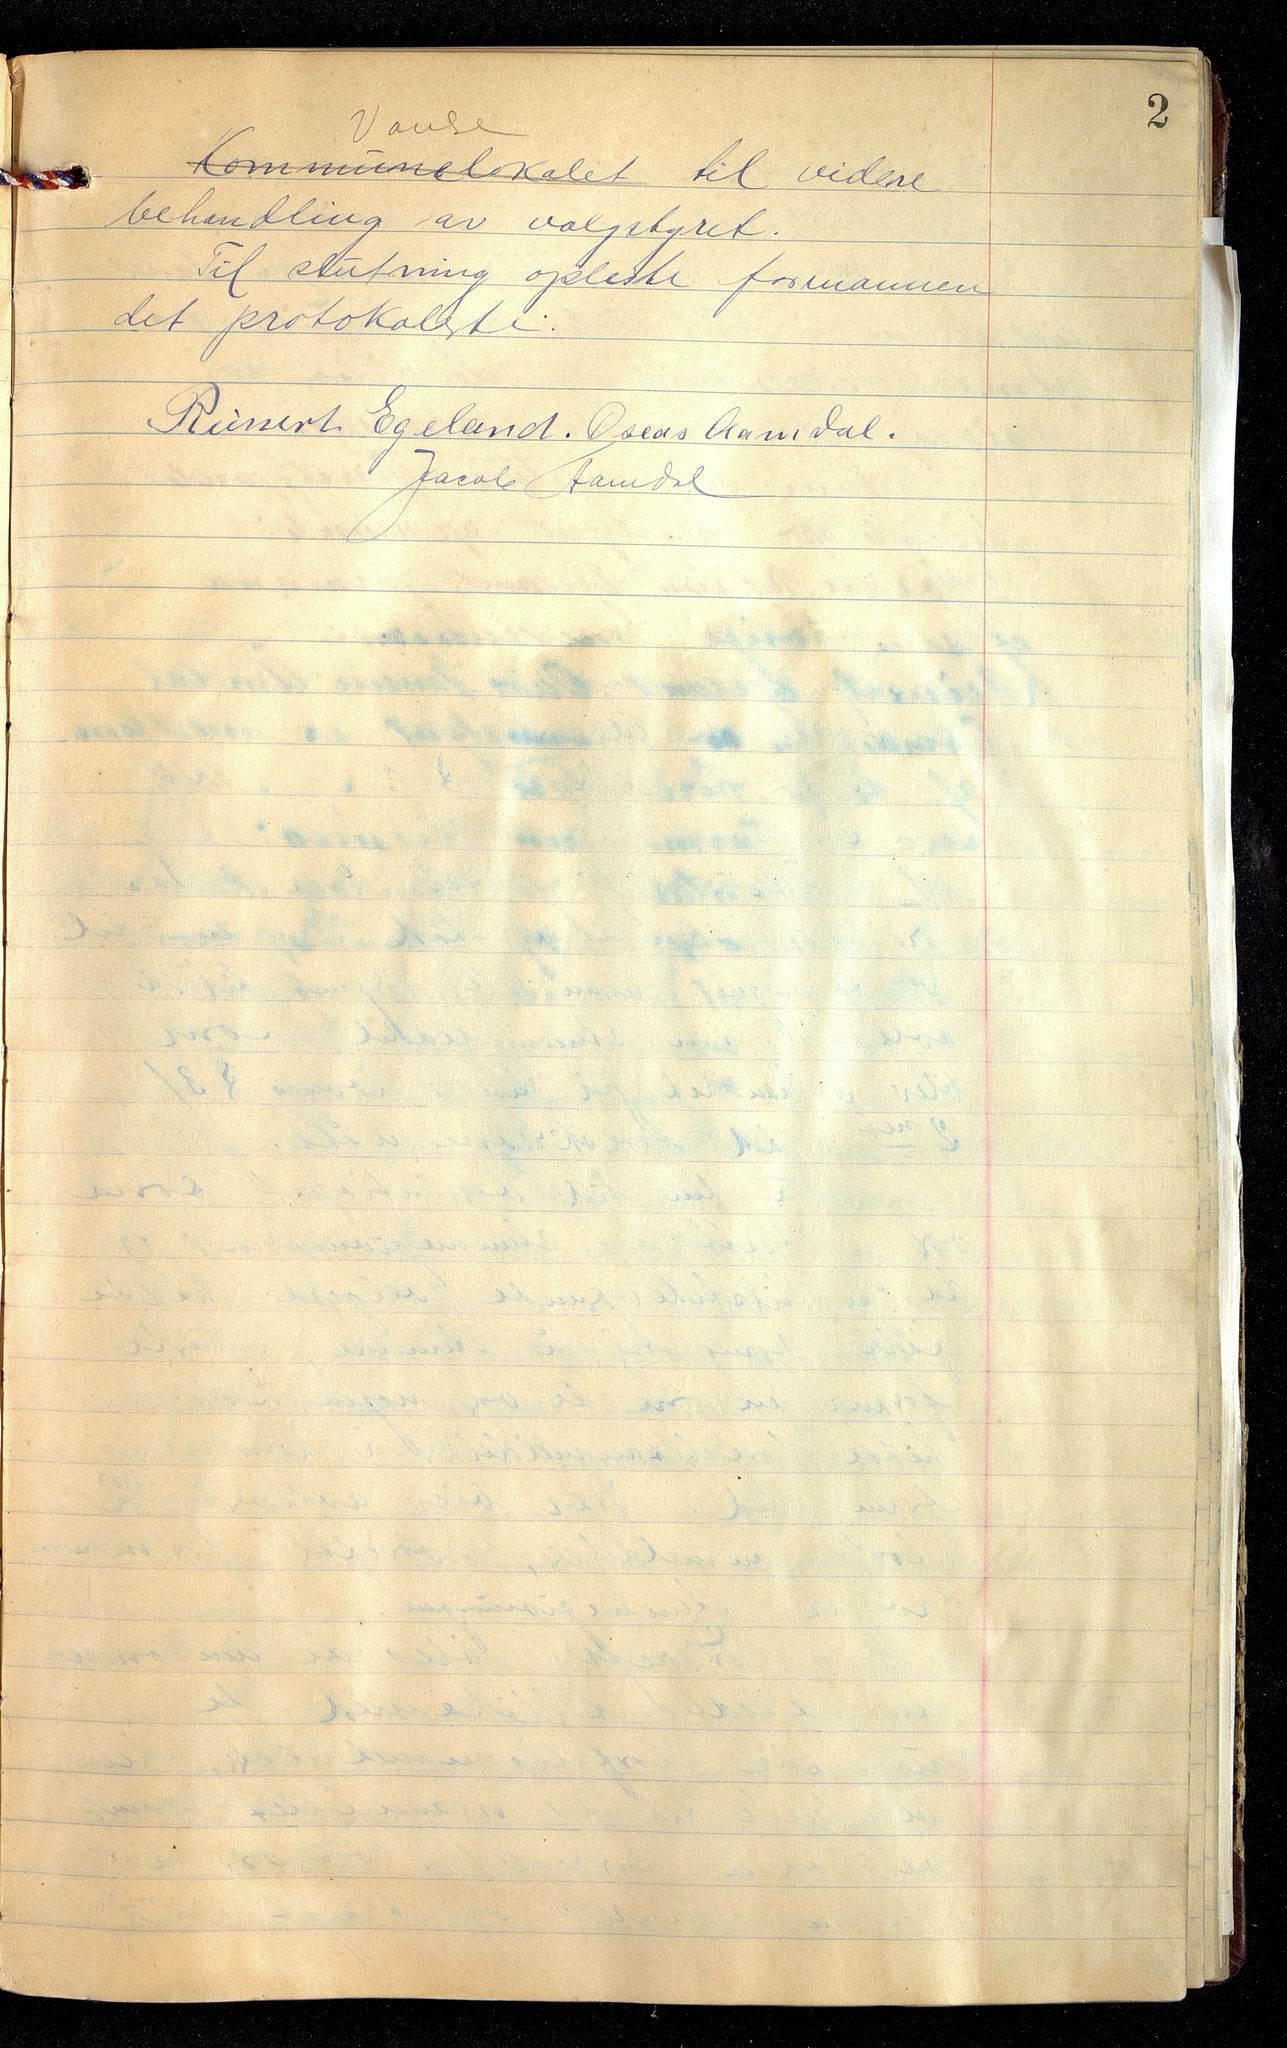 2
Vanse
Kommunelokalet til videre
behandling av valgstyret.
Til slutning opleste formannen
det protokolerte.
Reinert Egeland. Oscar Aamdal.
Jacob Aamdal